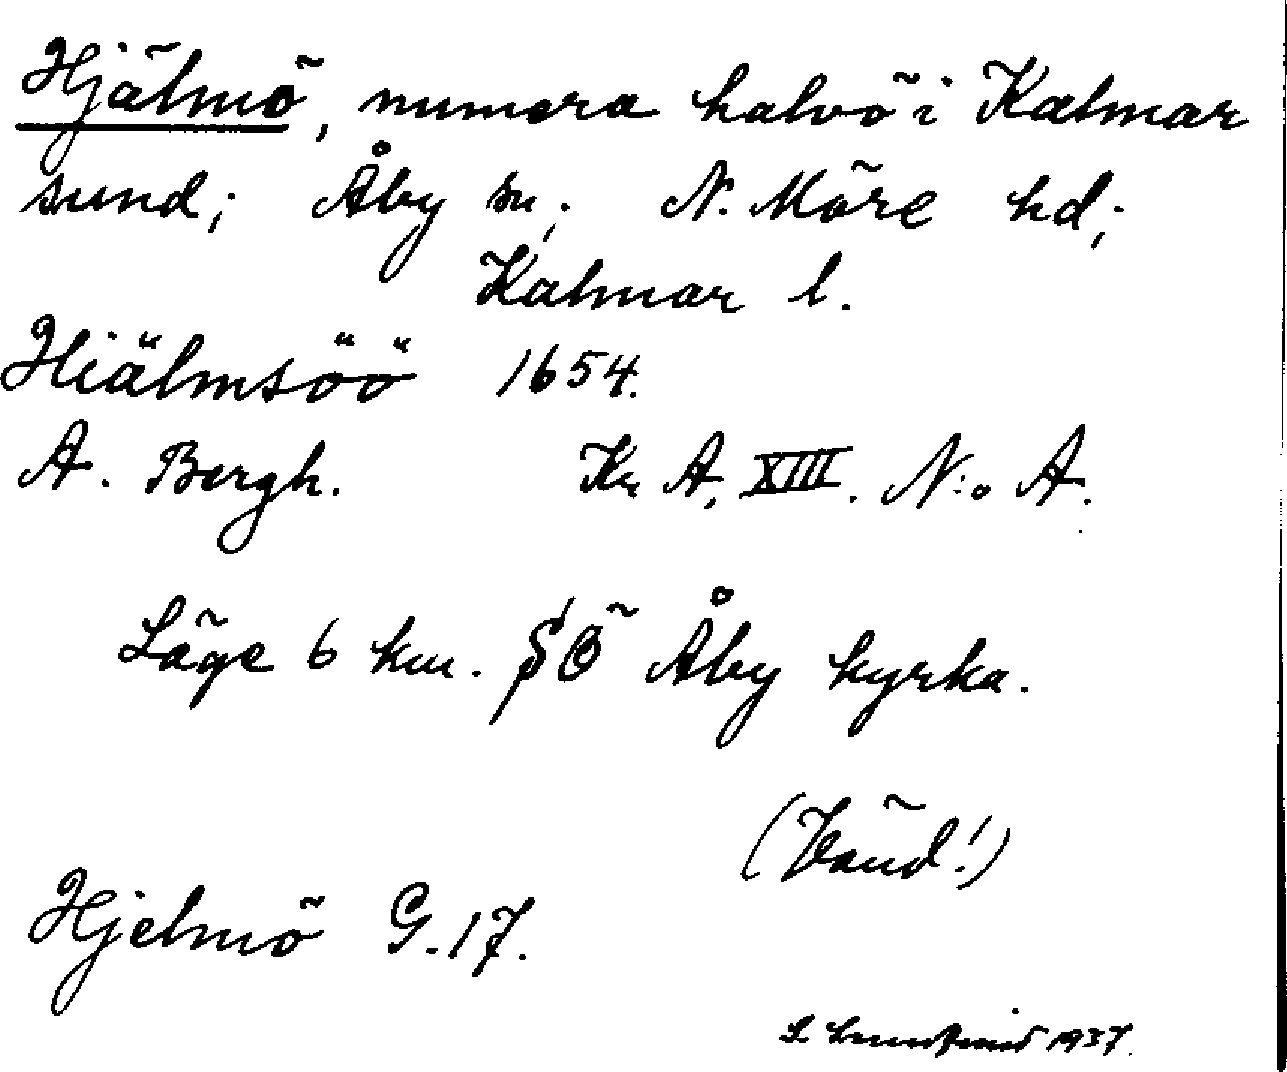 Hjälmö, numera halvö i Kalmar
sund; Åby sn; N. Möre hd;
Kalmar l.
Hiälmsöö 1654.
A. Bergh. Kr A, XIII. N:o A.
Läge 6 km. SÖ Åby kyrka.
(Vänd!)
Hjelmö G. 17.
1937.